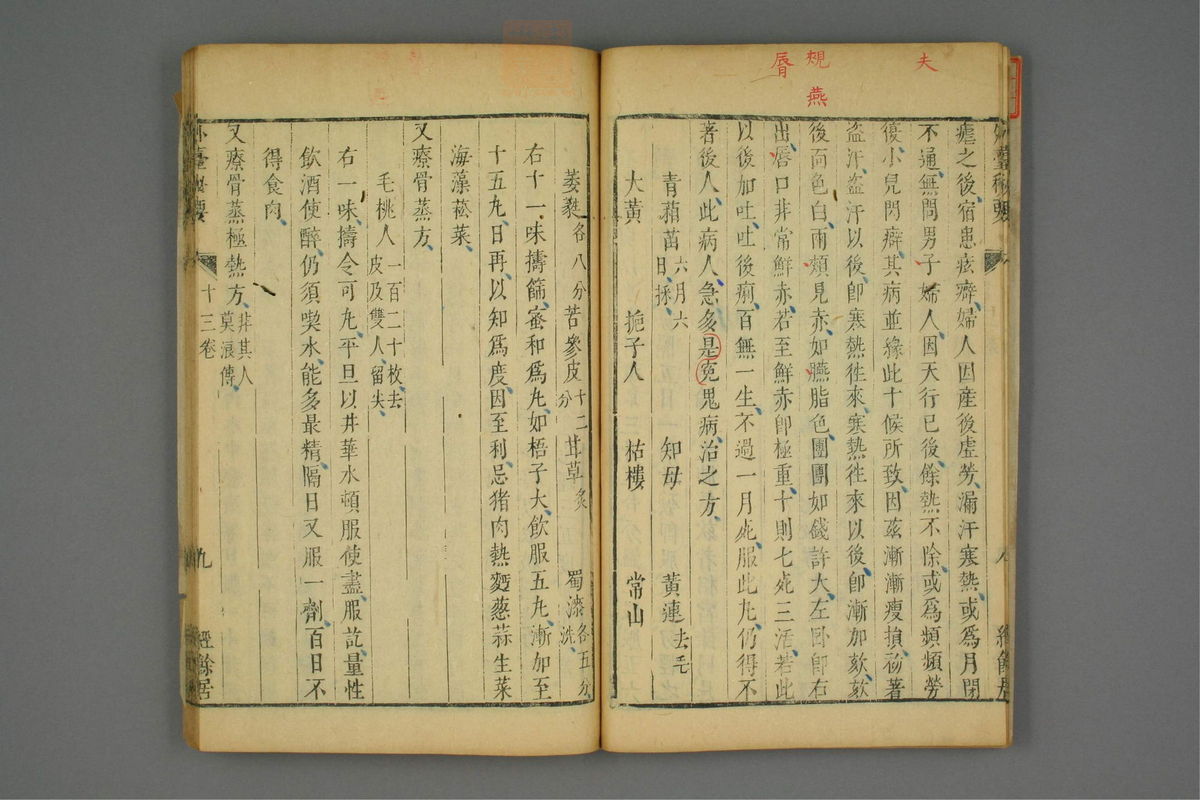 夫
䂓
燕
脣
外臺秘要
八
經餘居
瘧之後宿患痃癖婦人因產後虛勞漏汗寒熱或爲月閉
不通無問男子婦人因天行已後餘熱不除或爲頻頻勞
復小兒閃癖其病並緣此十候所致因茲漸漸瘦損初著
盗汗盗汗以後卽寒熱徃來寒熱徃來以後卽漸加欬欬
後面色白兩頰見赤如臙脂色團團如錢許大左卧卽右
出唇口非常鮮赤若至鮮赤卽極重十則七死三活若此
以後加吐吐後痢百無一生不過一月死服此九仍得不
著後人此病人急多是寃鬼病治之方
青葙苗六月六日採 知母 黃連去毛
大黃 梔子人 枯樓 常山
萎蕤各八分 苦參皮十二分 茸草炙 蜀漆各五分洗
右十一味擣篩蜜和爲九如梧子大飲服五九漸加至
十五九日再以知爲度因至利忌猪肉熱麪葱蒜生菜
海藻菘菜
又療骨蒸方
毛桃人一百二十枚去皮及雙人留尖
右一味擣令可九平旦以井華水頓服使盡服訖量性
飲酒使醉仍須喫水能多最精隔日又服一劑百日不
得食肉
又療骨蒸極熱方非其人莫浪傳
外臺秘要
十三卷
九
經餘居